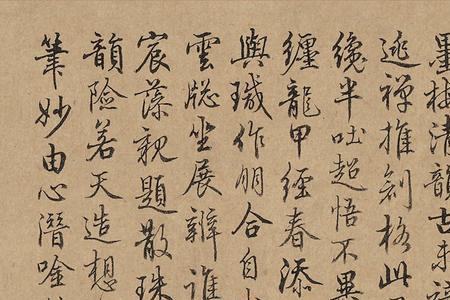 墨梅清韻古未
逃禪推創格此
纔半吐超悟不異
纏龍甲經春添
與作朋合自
雲牕坐展辨誰
宸藻親題散珠
韻險若天造想
筆妙由心潛唫